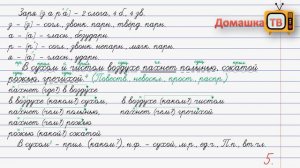 Домашка
ТВ
Заря [з а р' а] – 2 слога, 4 б., 4 зв.
з – [з] – согл., звонк. парн., твёрд. парн.
а – [а] – гласн., безударн.
р – [р'] – согл., звонк. непарн., мягк. парн.
я – [а] – гласн., ударн.
В сухом и чистом воздухе пахнет полынью, сжатой
рожью, гречихой. (Повеств., невоскл., прост., распр.)
пахнет (где?) в воздухе
в воздухе (каком?) сухом, в воздухе (каком?) чистом
пахнет (чем?) полынью, пахнет (чем?) гречихой
пахнет (чем?) рожью
рожью (какой?) сжатой
В сухом – прил. (каком?), н.ф. – сухой, м.р., ед.ч., П.п., вт. чл.
5.